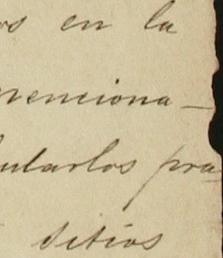 os en la
menciona-
ularlos pra
sitios